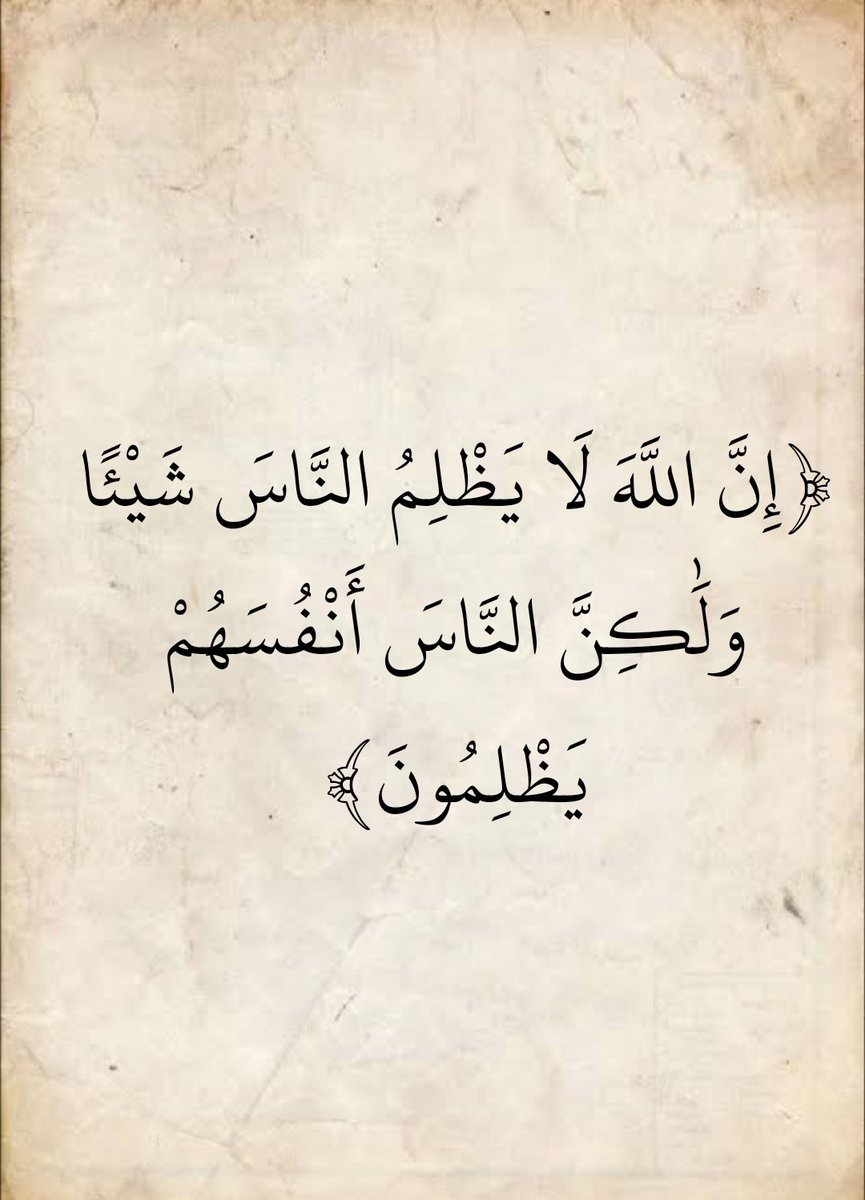 ﴿إِنَّ اللَّهَ لَا يَظْلِمُ النَّاسَ شَيْئًا
وَلَٰكِنَّ النَّاسَ أَنْفُسَهُمْ
يَظْلِمُونَ﴾